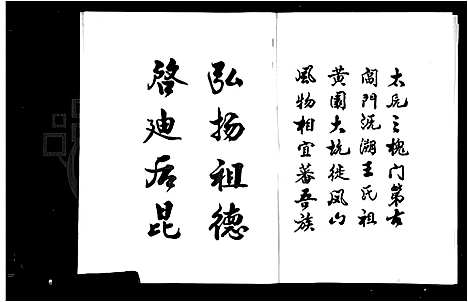 太原三槐门第古
阊门沉湖王氏祖
黄园大坑徙凤山
风物相宜蕃吾族
弘扬祖德
启迪后昆